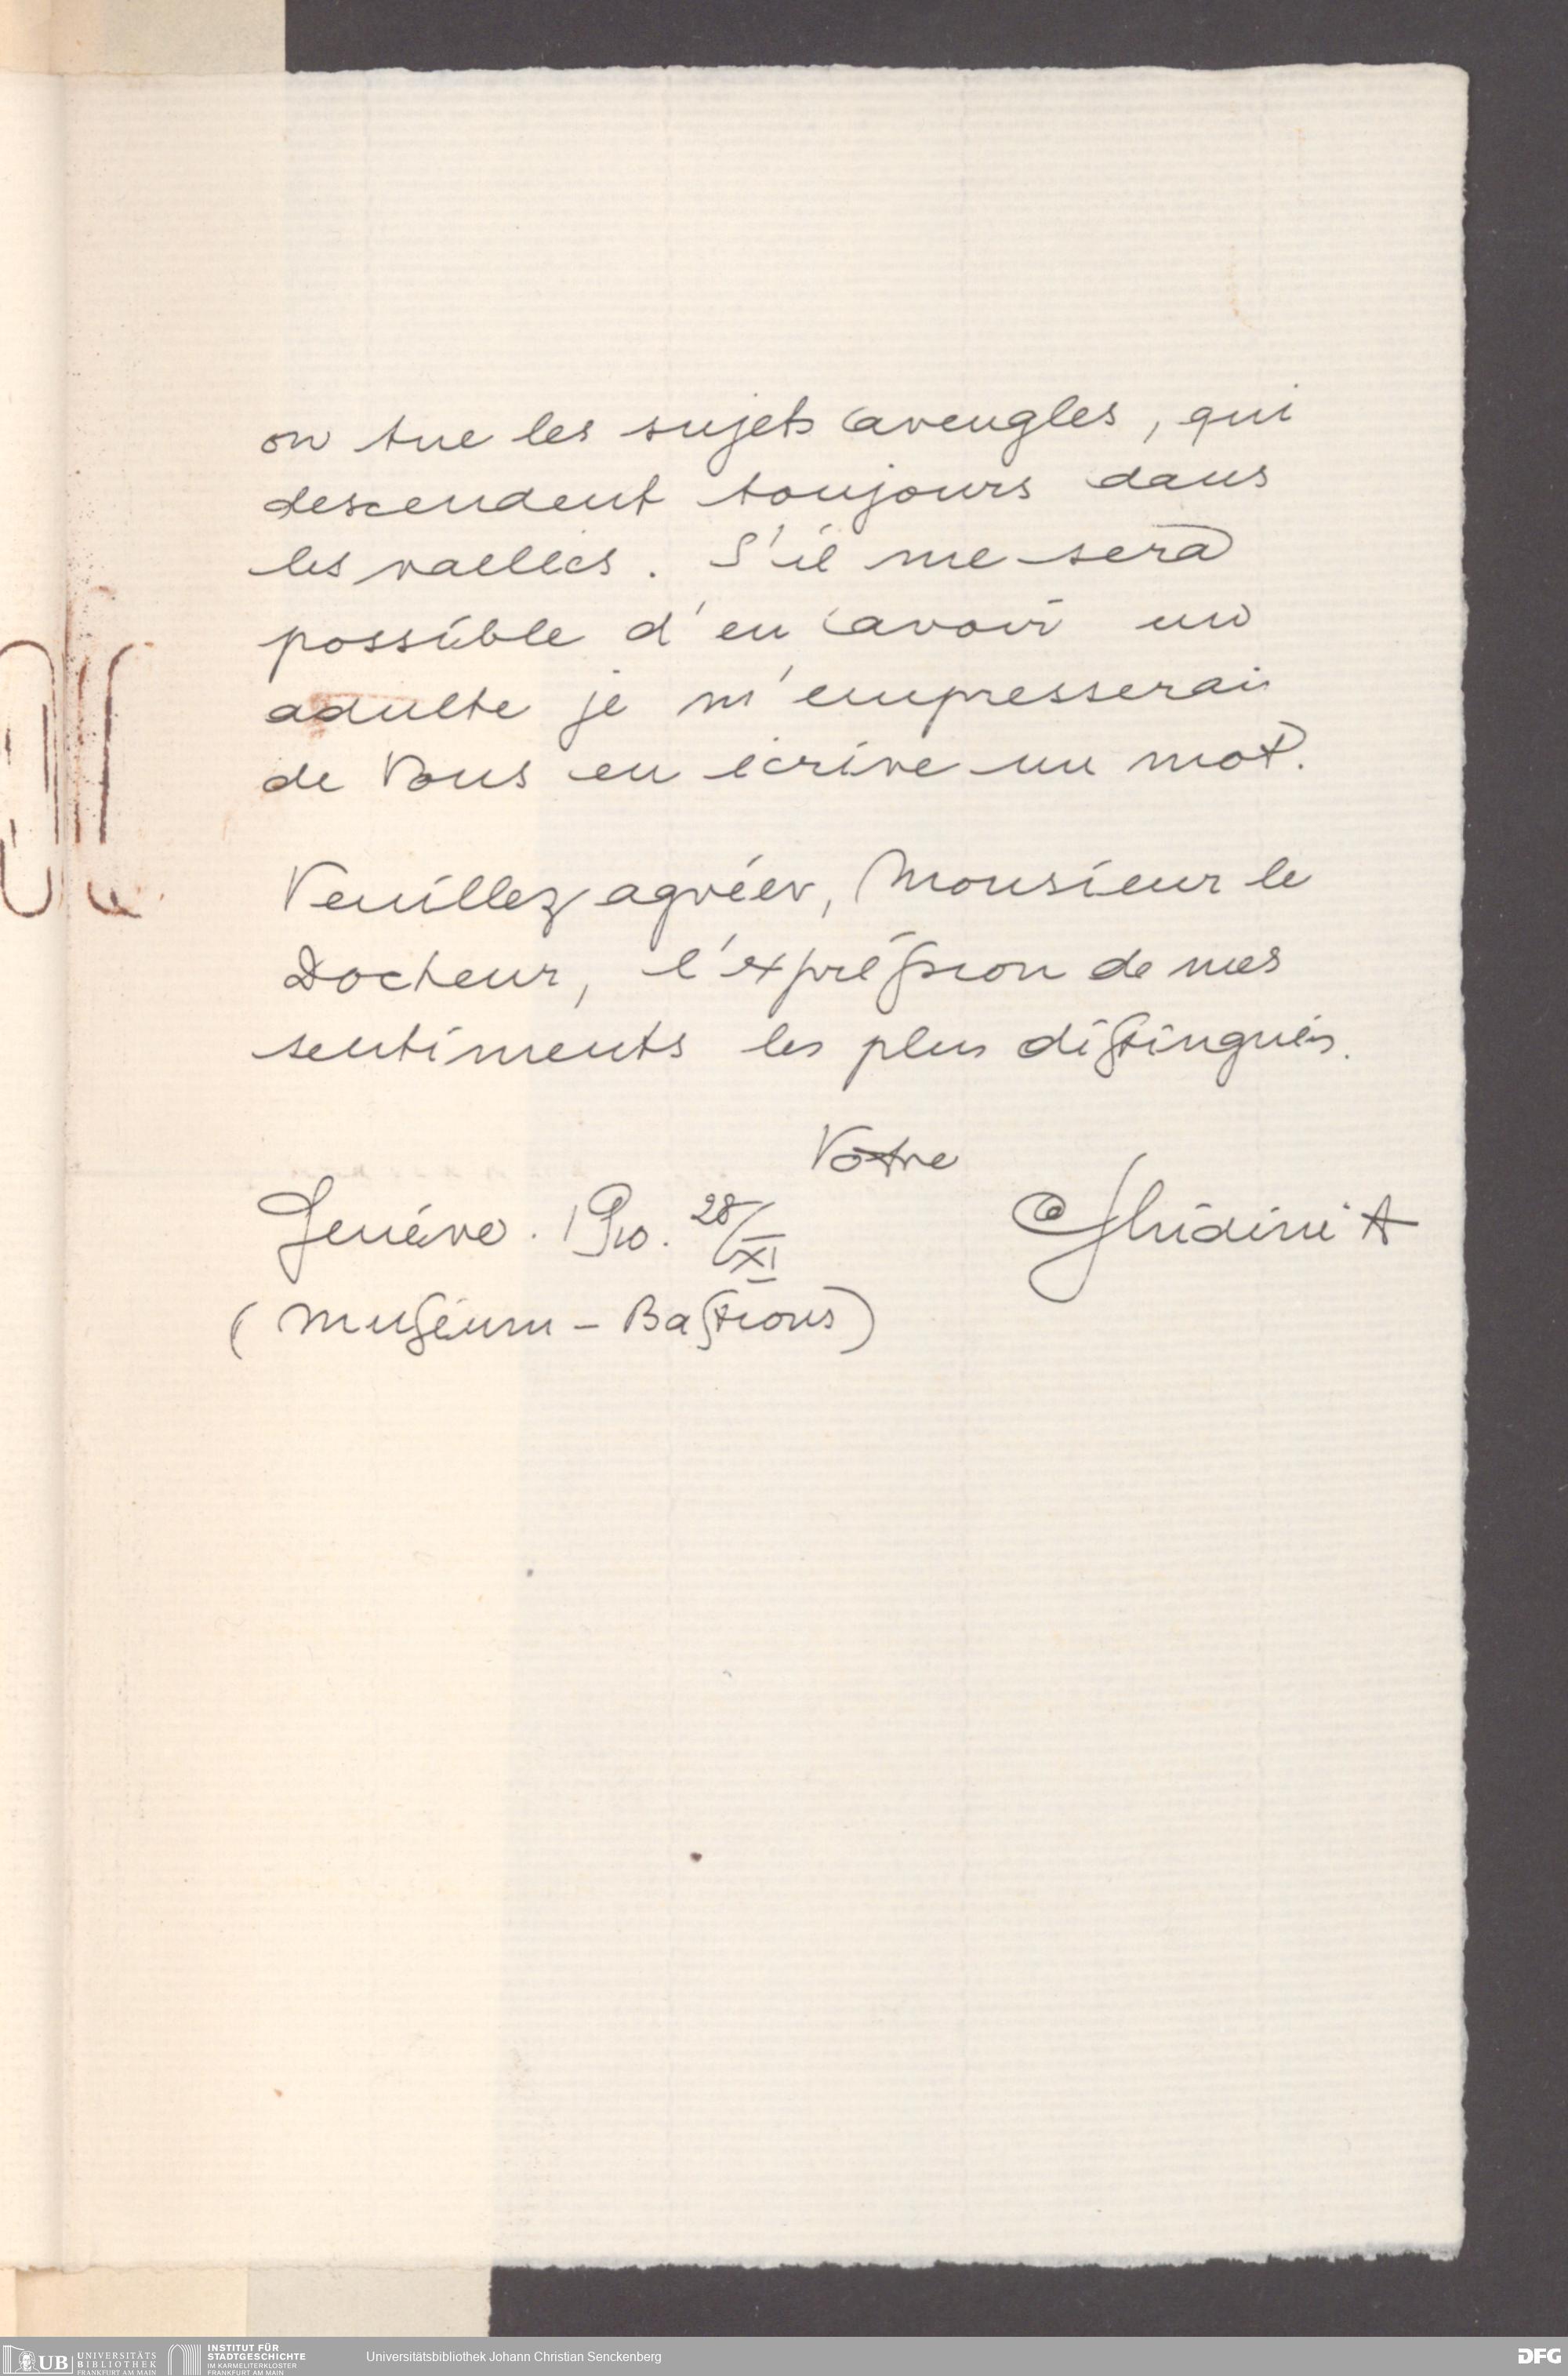 on tue les sujets aveugles, qui
descendent toujours dans
les vallées. S'il me sera
possible d'en avoir un
adulte je m'empresserai
de Vous en écrire un mot.
Veuillez agréer, Monsieur le
Docteur, l'expreſsion de mes
sentiments les plus diſtingués.
Votre
Genève. 1910. 28/XI
Ghidini A
(Muſéum - Baſtions)
UB UNIVERSITÄTS
BIBLIOTHEK
FRANKFURT AM MAIN
INSTITUT FÜR
STADTGESCHICHTE
IM KARMELITERKLOSTER
FRANKFURT AM MAIN
Universitätsbibliothek Johann Christian Senckenberg
DFG